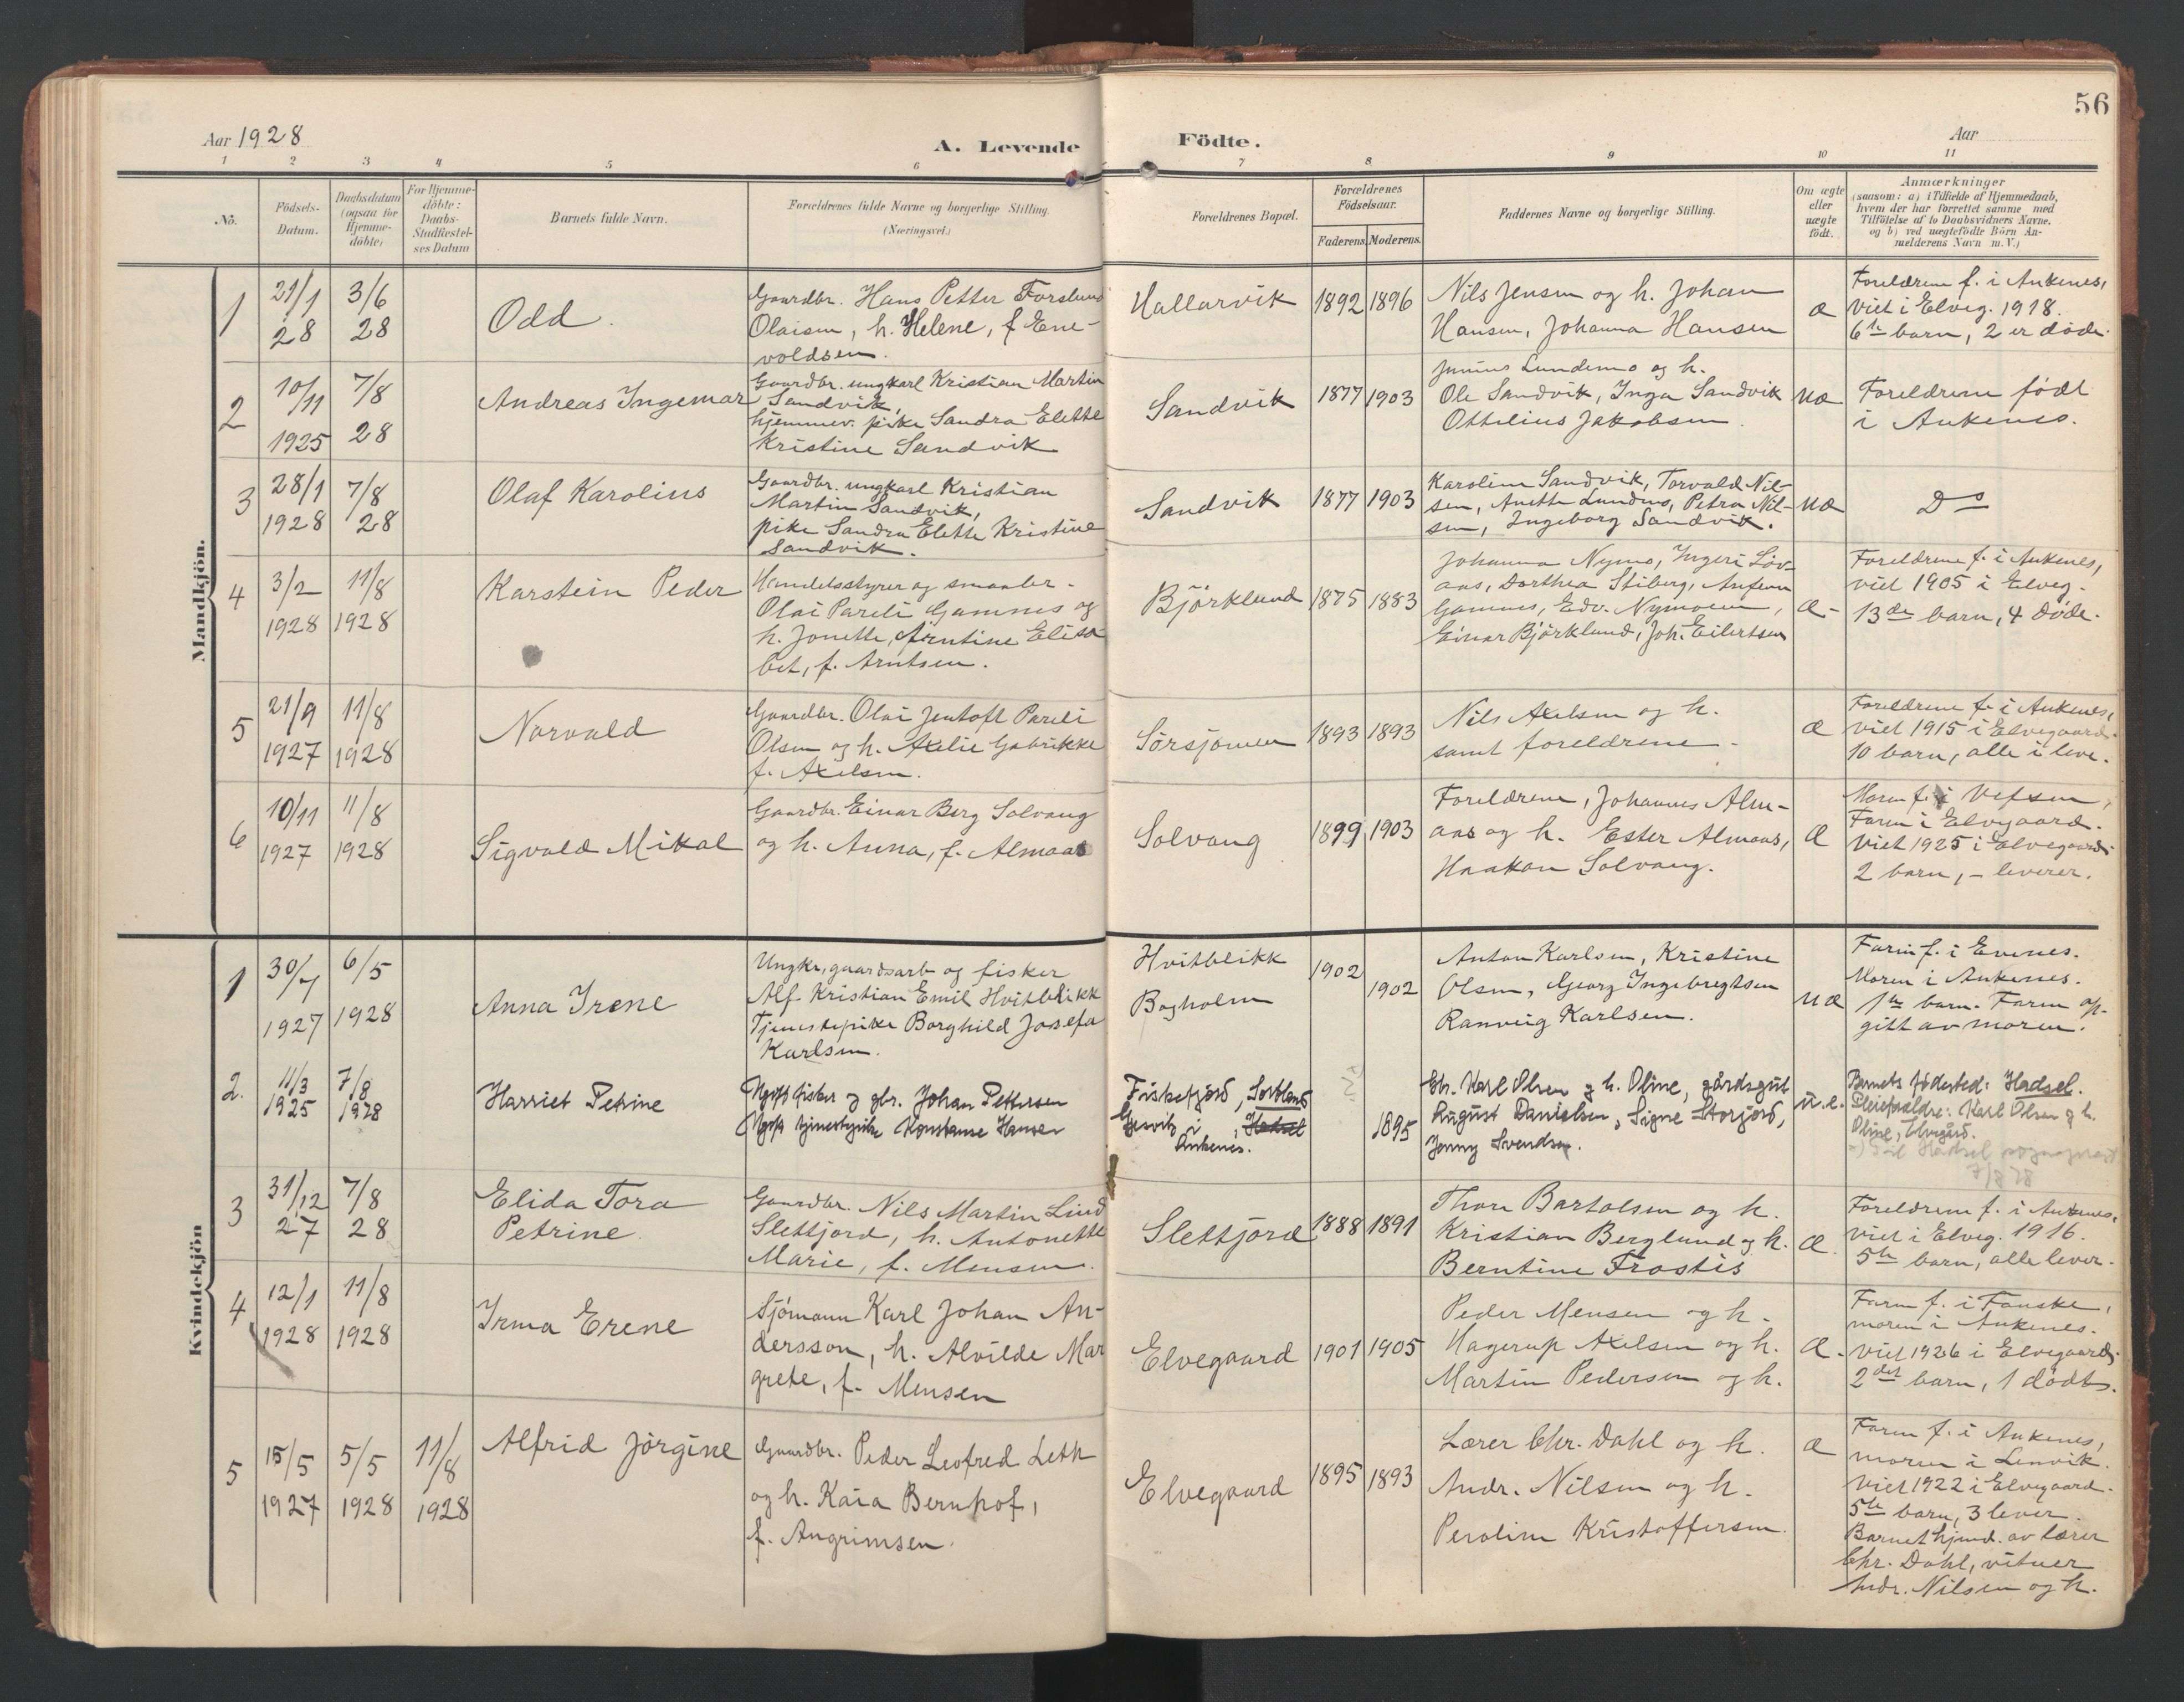 56
Aar 1928
A. Levende
Födte.
Aar
1 2 3 4 5 6 7 8 9 10 11
No.
Födsels-
Datum.
Daabsdatum
(ogsaa for
Hjemme-
döbte)
For Hjemme-
döbte:
Daabs-
Stadfæstel-
ses Datum
Barnets fulde Navn.
Forældrenes fulde Navne og borgerlige Stilling.
(Næringsvei.)
Forældrenes Bopæl.
Forældrenes
Födselsaar.
Faderens. Moderens.
Faddernes Navne og borgerlige Stilling.
Om ægte
eller
uægte
födt.
Anmærkninger
(saasom: a) i Tilfælde af Hjemmedaab,
hvem der har forrettet samme med
Tilföielse af to Daabsvidners Navne.
og b) ved uægtefödte Börn An-
melderens Navn m. V.)
Mandkjön.
1
21/1
28
3/6
28
Odd.
Gaardbr. Hans Petter Forslund
Olaisen, h. Helene, f. Ene-
voldsen.
Hallarvik
1892 1896
Nils Jensen og h. Johan
Hansen, Johanna Hansen
æ
Foreldrene f. i Ankenes,
viet i Elveg. 1918.
6te barn, 2 er døde.
2
10/11
1925
7/8
28
Andreas Ingemar
Gaardbr. ungkarl Kristian Martin
Sandvik,
hjemmev. pike Sandra Elette
Kristine Sandvik
Sandvik
1877 1903
Junius Lundemo og h.
Ole Sandvik, Inga Sandvik
Ottelius Jakobsen.
uæ
Foreldrene født
i Ankenes.
3
28/1
1928
7/8
28
Olaf Karolius
Gaardbr. ungkarl Kristian
Martin Sandvik,
pike Sandra Elette Kristine
Sandvik.
Sandvik
1877 1903
Karoline Sandvik, Torvald Nil-
sen, Anette Lundmo, Petra Nil-
sen, Ingeborg Sandvik.
uæ
Do
4
3/2
1928
11/8
1928
Karstein Peder
Handelsstyrer og smaabr.
Olai Pareli Gamnes og
h. Jonette, Arntine Elisa
bet, f. Arntsen.
Björklund
1875 1883
Johanna Nymo, Ingeri Löv-
aas, Dorthea Stiberg,
Gamnes, Edv. Nymoen,
Einar Björklund, Joh. Eilertsen
æ-
Foreldrene f. i Ankenes,
viet 1905 i Elveg.
13de barn, 4 døde.
5
21/9
1927
11/8
1928
Norvald
Gaardbr. Olai Jentoft Pareli
Olsen og h. Axelie Gabrikke
f. Axelsen.
Sörsjonen
1893 1893
Nils Axelsen og h.
samt foreldrene.
æ
Foreldrene f. i Ankenes,
viet 1915 i Elvegaard.
10 barn, alle i live.
6
10/11
1927
11/8
1928
Sigvald Mikal
Gaardbr. Einar Berg Solvang
og h. Anna, f. Almaas
Solvang
1899 1903
Foreldrene, Johannes Alm-
aas og h. Ester Almaas,
Haakon Solvang.
æ
Moren f. i Vefsen,
Faren i Elvegaard.
Viet 1925 i Elvegaard.
2 barn, - leverer.
Kvindekjön
1
30/7
1927
6/5
1928
Anna Irene
Ungkr, gaardsarb og fisker
Alf Kristian Emil Hvitblikk
Tjenestepike Borghild Josefa
Karlsen.
Hvitblikk
Bogholm
1902
1902
Anton Karlsen, Kristine
Olsen, Georg Ingebregtsen
Ranveig Karlsen.
uæ
Faren f. i Evenes.
Moren i Ankenes.
1ste barn. Faren op-
gitt av moren.
2.
11/3
1925
7/8
1928
Harriet Petrine
Ugift fisker og gbr. Johan Pettersen
Ugift tjenestepike Konstanse Hansen
Fiskefjord, Lødingen
i Hadsel
Ankenes.
1895
Gbr. Karl Olsen og h. Oline, gårdsgut
August Danielsen, Signe Storjord,
Jenny Svendsen.
u.e.
Barnets fødested: Hadsel.
Pleieforeldre: Karl Olsen og h.
Oline, Elvegård.
Hadsel sogneprest
7/8 28
3
31/12
27
7/8
28
Elida Tora
Petrine
Gaardbr. Nils Martin Lind
Slettjord, h. Antonette
Marie, f. Mensen.
Slettjord
1888 1891
Thore Bartolsen og h.
Kristian Berglund og h.
Berntine Frostis
æ.
Foreldrene f. i Ankenes,
viet i Elveg. 1916.
5te barn, alle lever.
4
12/1
1928
11/8
1928
Irma Erene
Sjömann Karl Johan An-
dersson, h. Alvilde Mar
grete, f. Mensen
Elvegaard
1901 1905
Peder Mensen og h.
Hagerup Axelsen og h.
Martin Pedersen og h.
æ.
Faren f. i Fauske,
moren i Ankenes.
Viet 1926 i Elvegaard.
2det barn, 1 dødt.
5
15/5
1927
5/5
1928
11/8
1928
Alfrid Jörgine
Gaardbr. Peder Leofred Leth
og h. Kaia Bernhof,
f. Angrimsen.
Elvegaard
1895 1893
Lærer Chr. Dahl og h.
Andr. Nilsen og h.
Peroline Kristoffersen.
æ
Faren f. i Ankenes,
moren i Lenvik.
Viet 1922 i Elvegaard.
5te barn, 3 lever.
Barnet hjmd. av lærer
Chr. Dahl, vitner
Andr. Nilsen og h.